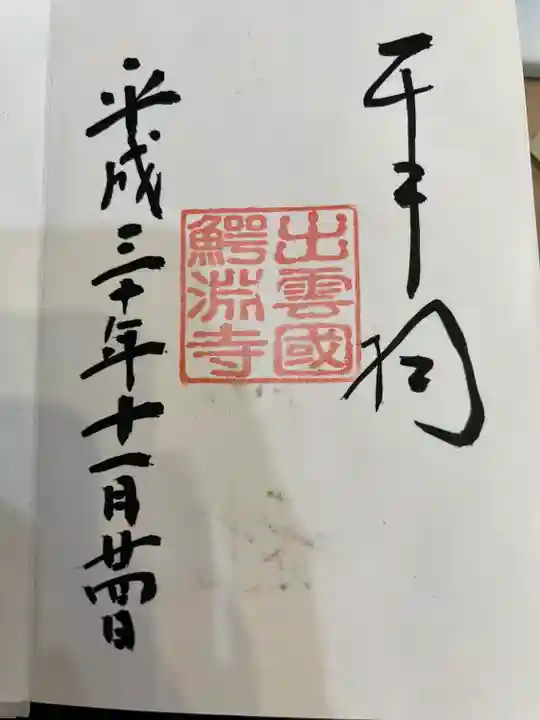 千手
出雲國
鰐淵寺
平成三十年十一月廿四日